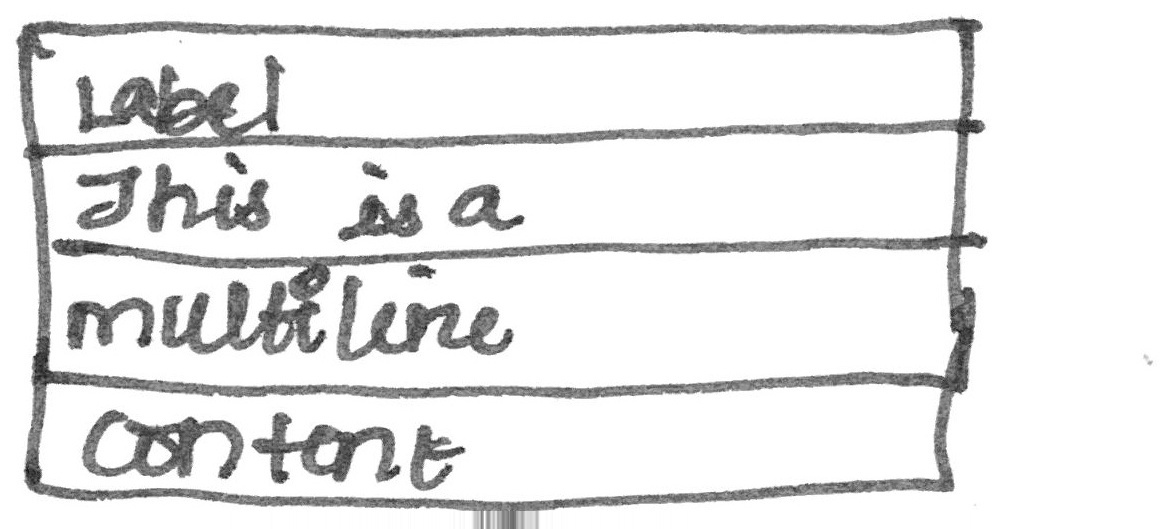 Label
This is a
multiline
Content